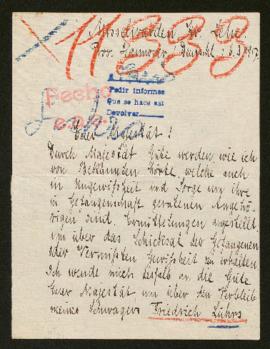 11888
Prov. Hannover
Pedir informes
Que se hace así
Devolver
Fecho
Euer Majestät!
Durch Majestät Güte werden wie ich
von Bekannten hörte, welche auch
in Ungewißheit und Sorge um ihre
in Gefangenschaft geratenen Angehö-
rigen sind. Ermittelungen angestellt
um über das Schicksal der Gefangenen
oder Vermissten Gewißheit zu erhalten
Ich wende mich deshalb an die Güte
Euer Majestät um über den Verbleib
meines Schwagers Friedrich Lührs